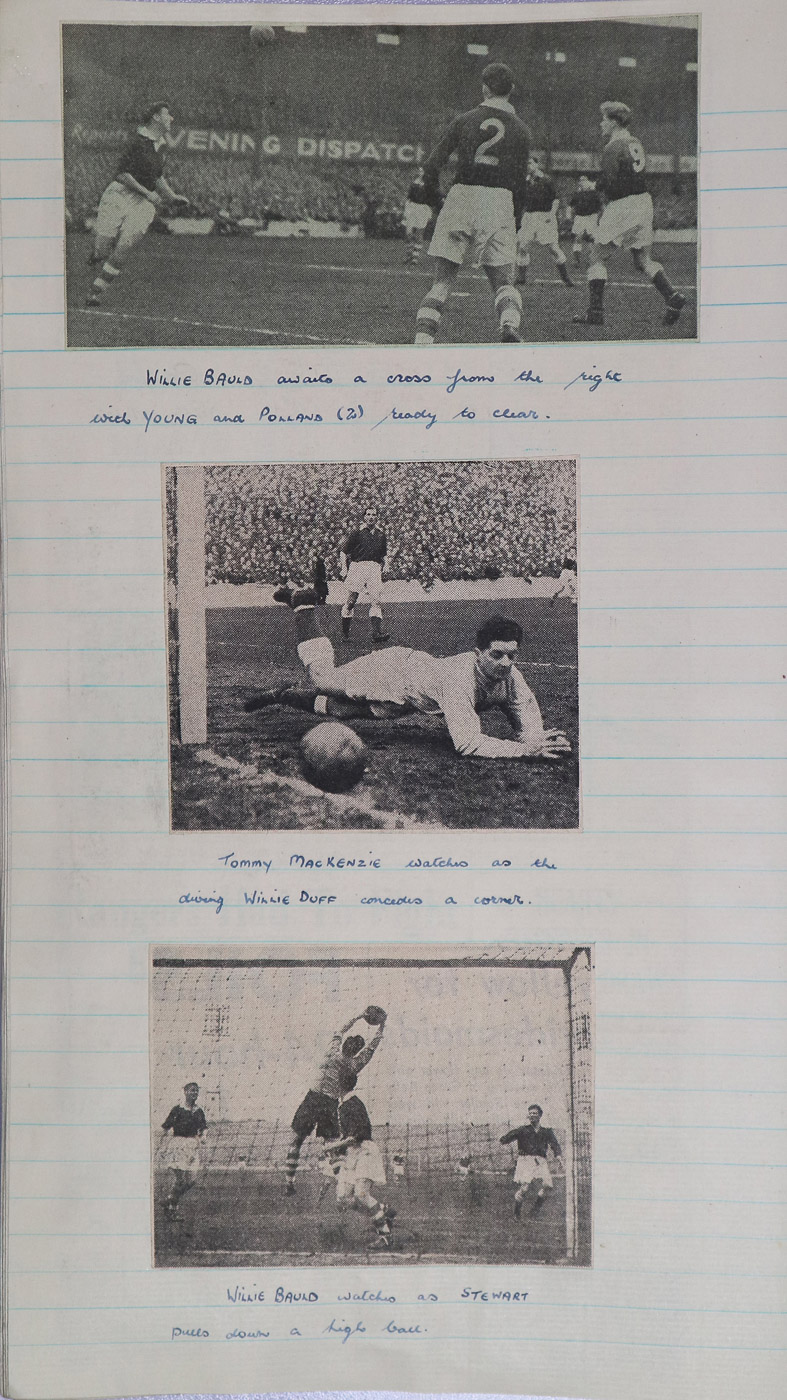 EVENING DISPATCH
2
9
WILLIE BAULD awaits a cross from the right
with YOUNG and POLLAND (2) ready to clear.
TOMMY MACKENZIE watches as the
diving WILLIE DUFF concedes a corner.
WILLIE BAULD watches as STEWART
pulls down a high ball.